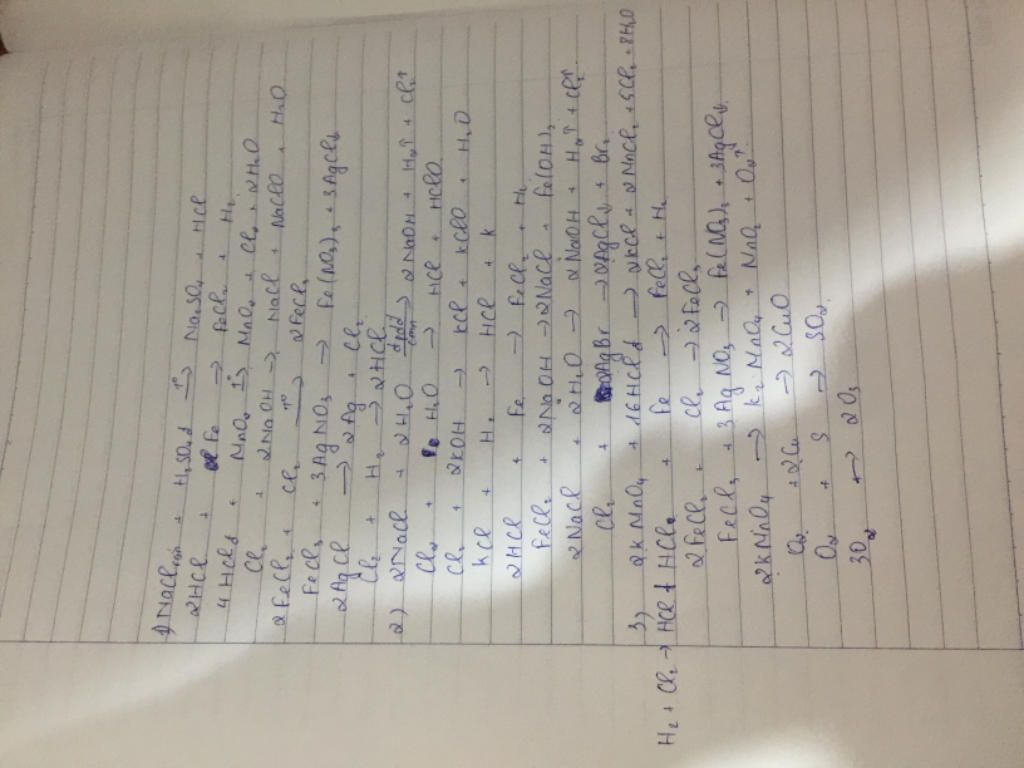 1) NaCl rắn + H2SO4 đ t°→ Na2SO4 + HCl
2HCl + Fe → FeCl2 + H2
4HCl đ + MnO2 t°→ MnO2 + Cl2 + 2H2O
Cl2 + 2NaOH → NaCl + NaClO + H2O
2FeCl2 + Cl2 t°→ 2FeCl3
FeCl3 + 3AgNO3 → Fe(NO3)3 + 3AgCl↓
2AgCl → 2Ag + Cl2
Cl2 + H2 → 2HCl
2) 2NaCl + 2H2O đpdd cmn→ 2NaOH + H2↑ + Cl2↑
Cl2 + H2O → HCl + HClO
Cl2 + 2KOH → KCl + KClO + H2O
KCl + H2 → HCl + K
2HCl + Fe → FeCl2 + H2
FeCl2 + 2NaOH → 2NaCl + Fe(OH)2
2NaCl + 2H2O → 2NaOH + H2↑ + Cl2↑
Cl2 + AgBr → 2AgCl↓ + Br2
3) 2KMnO4 + 16HCl đ → 2KCl + 2MnCl2 + 5Cl2 + 8H2O
H2 + Cl2 → HCl + Fe → FeCl2 + H2
2FeCl2 + Cl2 → 2FeCl3
FeCl3 + 3AgNO3 → Fe(NO3)3 + 3AgCl↓
2KMnO4 → K2MnO4 + MnO2 + O2↑
O2 + 2Cu → 2CuO
O2 + S → SO2
3O2 ↔ 2O3